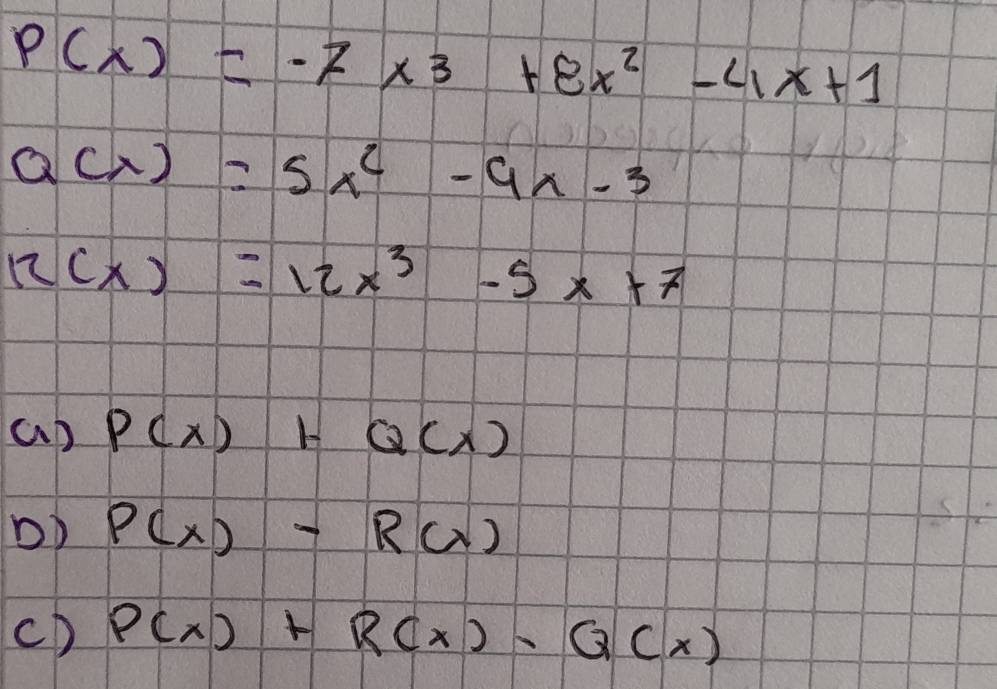 P(x) = -7x3 +8x² -4x+1
Q(x) = 5x² -9x -3
R(x) = 12x³ -5x +7
a) P(x) + Q(x)
b) P(x) - R(x)
c) P(x) + R(x) - Q(x)